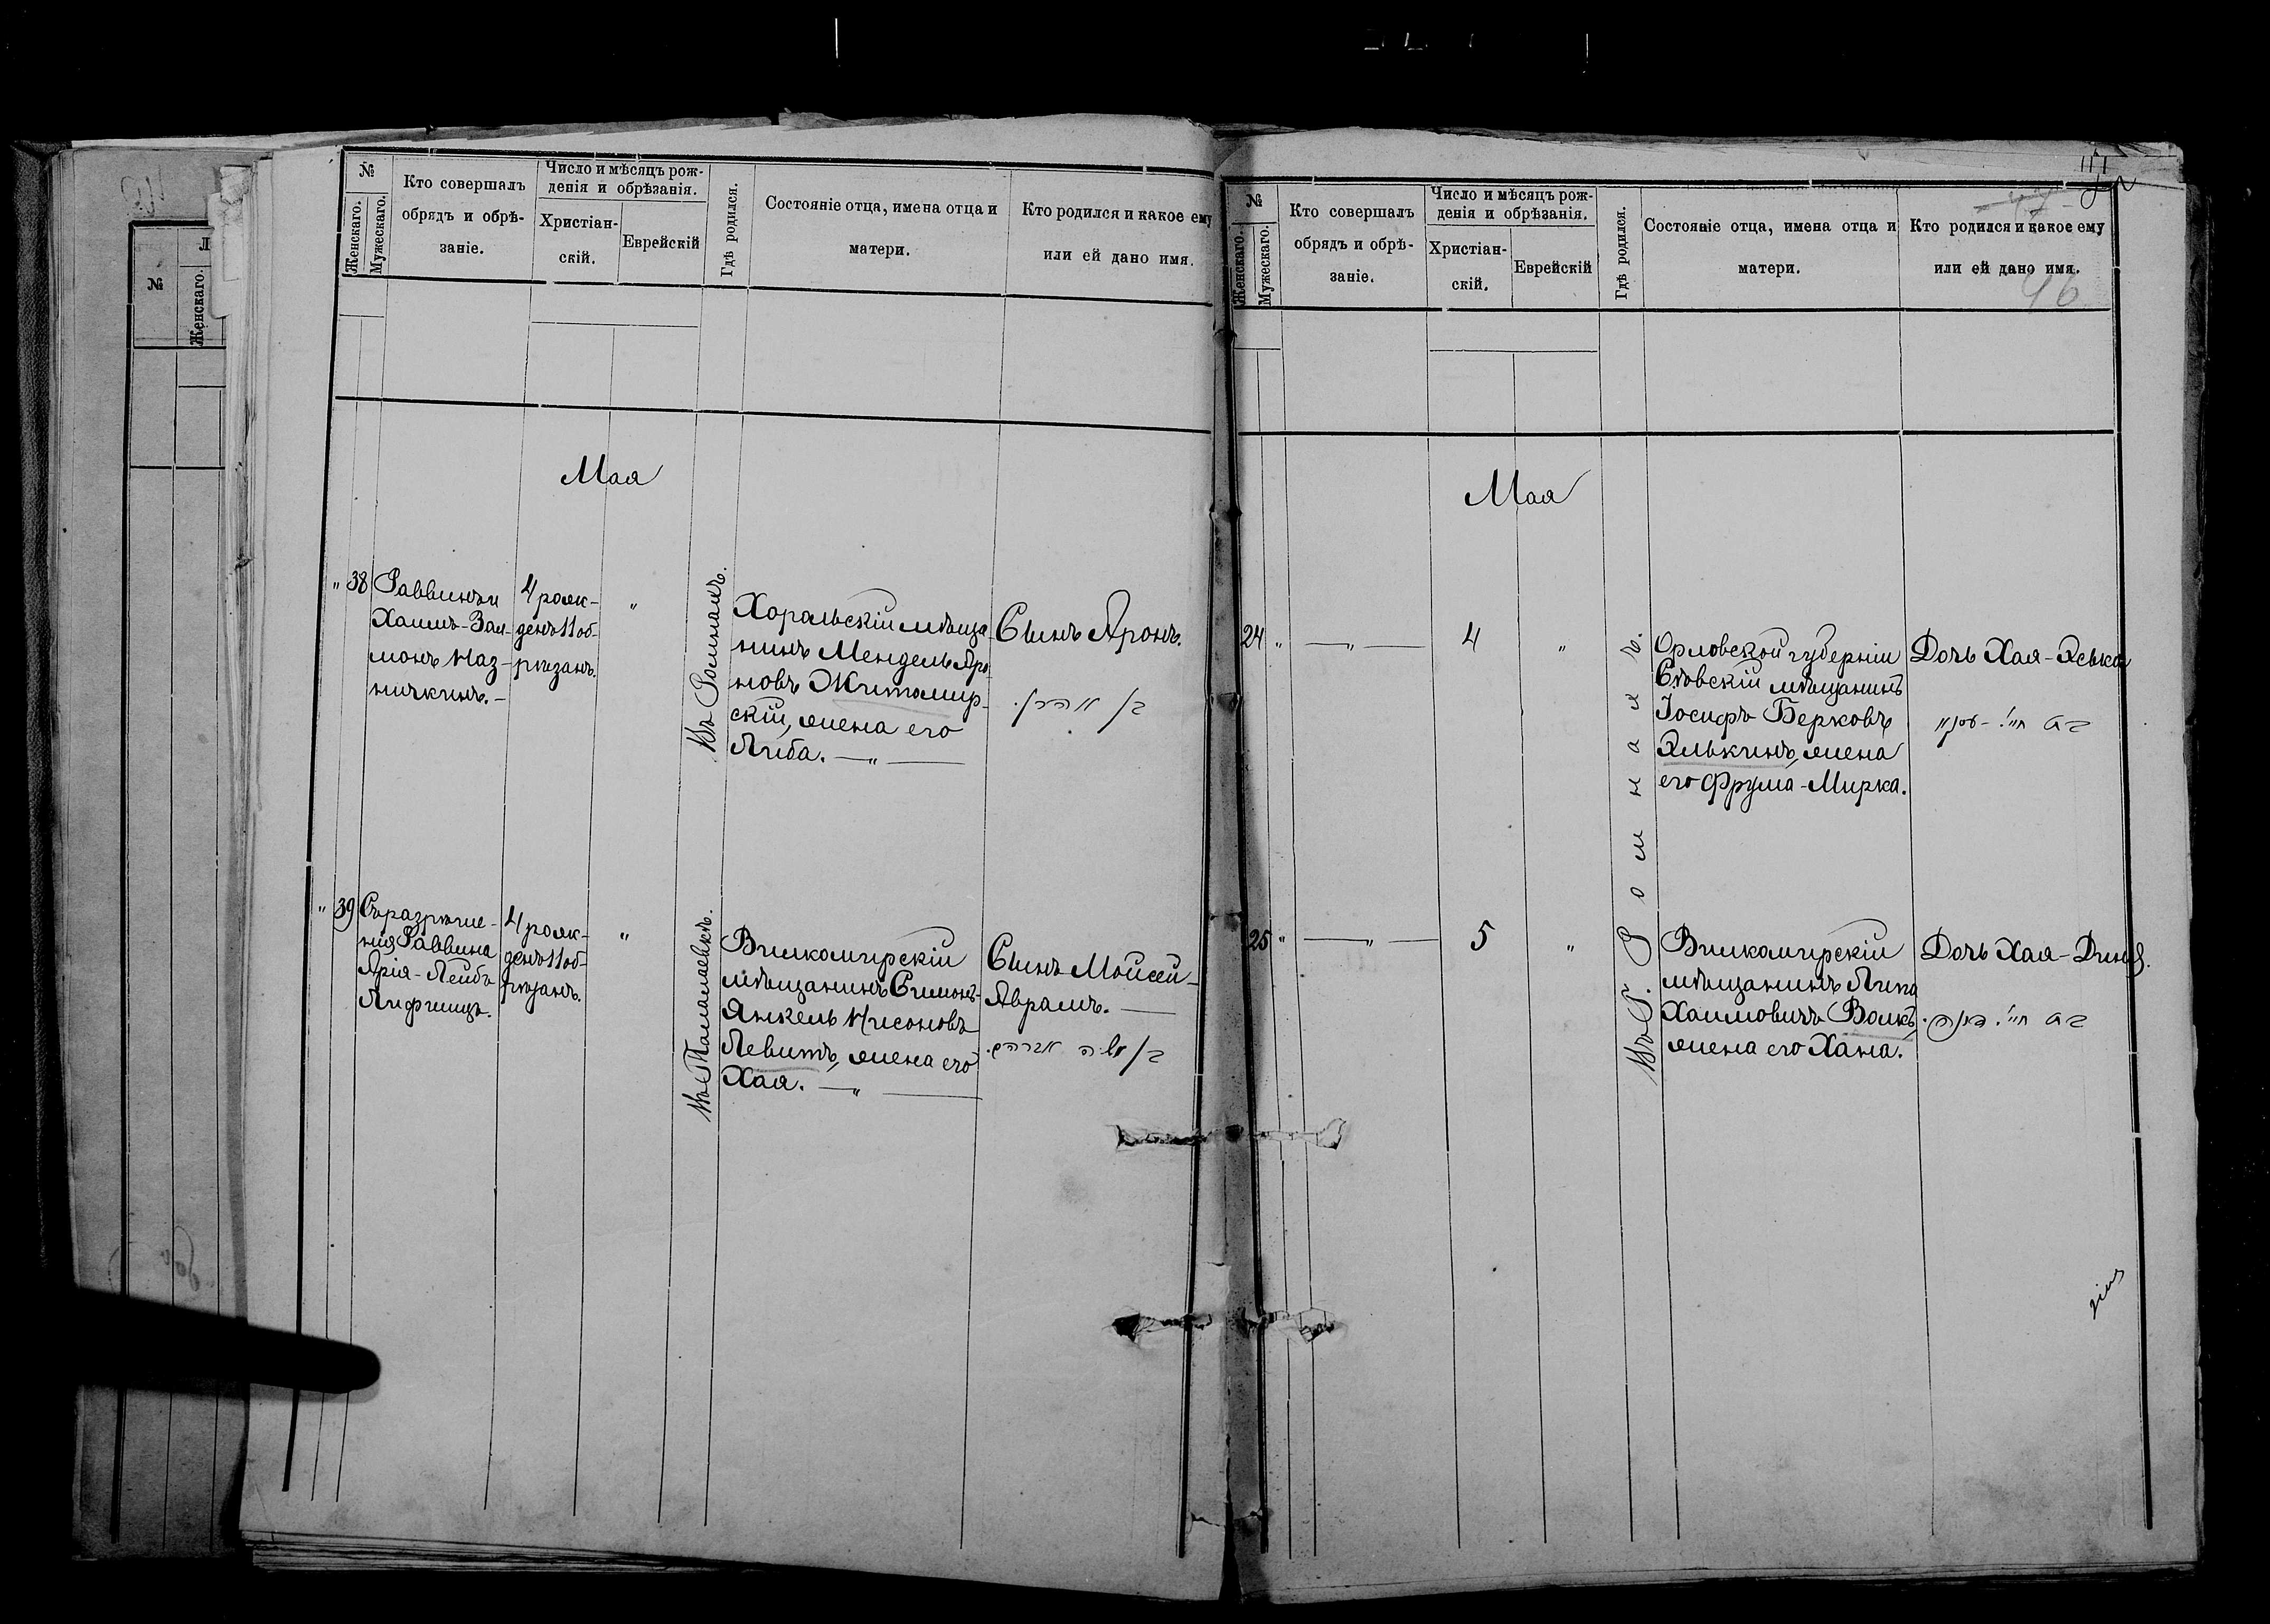 №
Женскаго.
Мужескаго.
Кто совершалъ
обрядъ и обрѣ-
заніе.
Число и мѣсяцъ рож-
денія и обрѣзанія.
Христіан-
скій.
Еврейскій
Гдѣ родился.
Состояніе отца, имена отца и
матери.
Кто родился и какое ему
или ей дано имя.
Мая
" 38
Раввинъ и
Хаимъ-Зал-
монъ Наз-
ничкинъ.-
4 рож-
денъ 11 об-
рѣзанъ.
"
Въ Ромнахъ.
Хорольскій мѣща-
нинъ Мендель Аро-
новъ Житомир-
скій, жена его
Либа. — " —
Сынъ Аронъ.
בן אהרן.
" 39
Съ разрѣше-
нія Раввина
Арія-Лейба
Лифшицъ.
4 рож-
денъ 11 об-
рѣзанъ.
"
Въ Талалаевкѣ.
Вилкомирскій
мѣщанинъ Симонъ-
Янкель Нисоновъ
Левитъ, жена его
Хая. — " —
Сынъ Мойсей-
Аврамъ. —
בן משה אברהם.
№
Женскаго.
Мужескаго.
Кто совершалъ
обрядъ и обрѣ-
заніе.
Число и мѣсяцъ рож-
денія и обрѣзанія.
Христіан-
скій.
Еврейскій
Гдѣ родился.
Состояніе отца, имена отца и
матери.
Кто родился и какое ему
или ей дано имя.
96
Мая
24 "
— " —
4
"
Въ г. Ромнахъ.
Орловской губерніи
Сѣвскій мѣщанинъ
Іосифъ Берковъ
Элькинъ, жена
его Фрума-Мирка.
Дочь Хая-Эська
בת חי'-עסקא
25 "
— " —
5
"
Вилкомирскій
мѣщанинъ Липа
Хаимовичъ Волкъ,
жена его Хана.
Дочь Хая-Дина.
בת חי'
№
Женскаго.